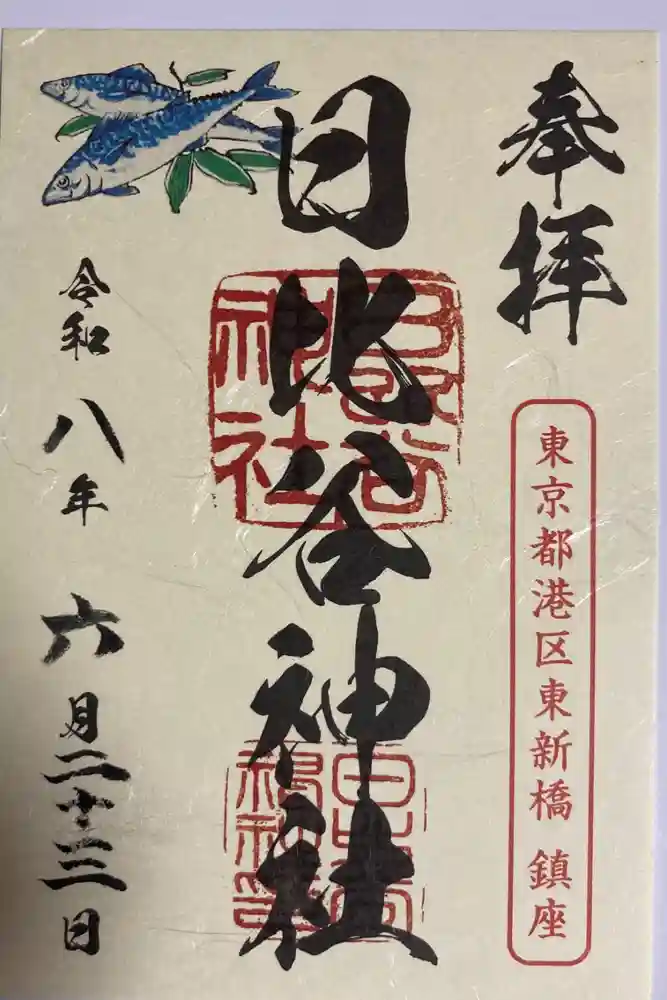 奉拝
東京都港区東新橋 鎮座
日比谷神社
令和八年 六月二十三日